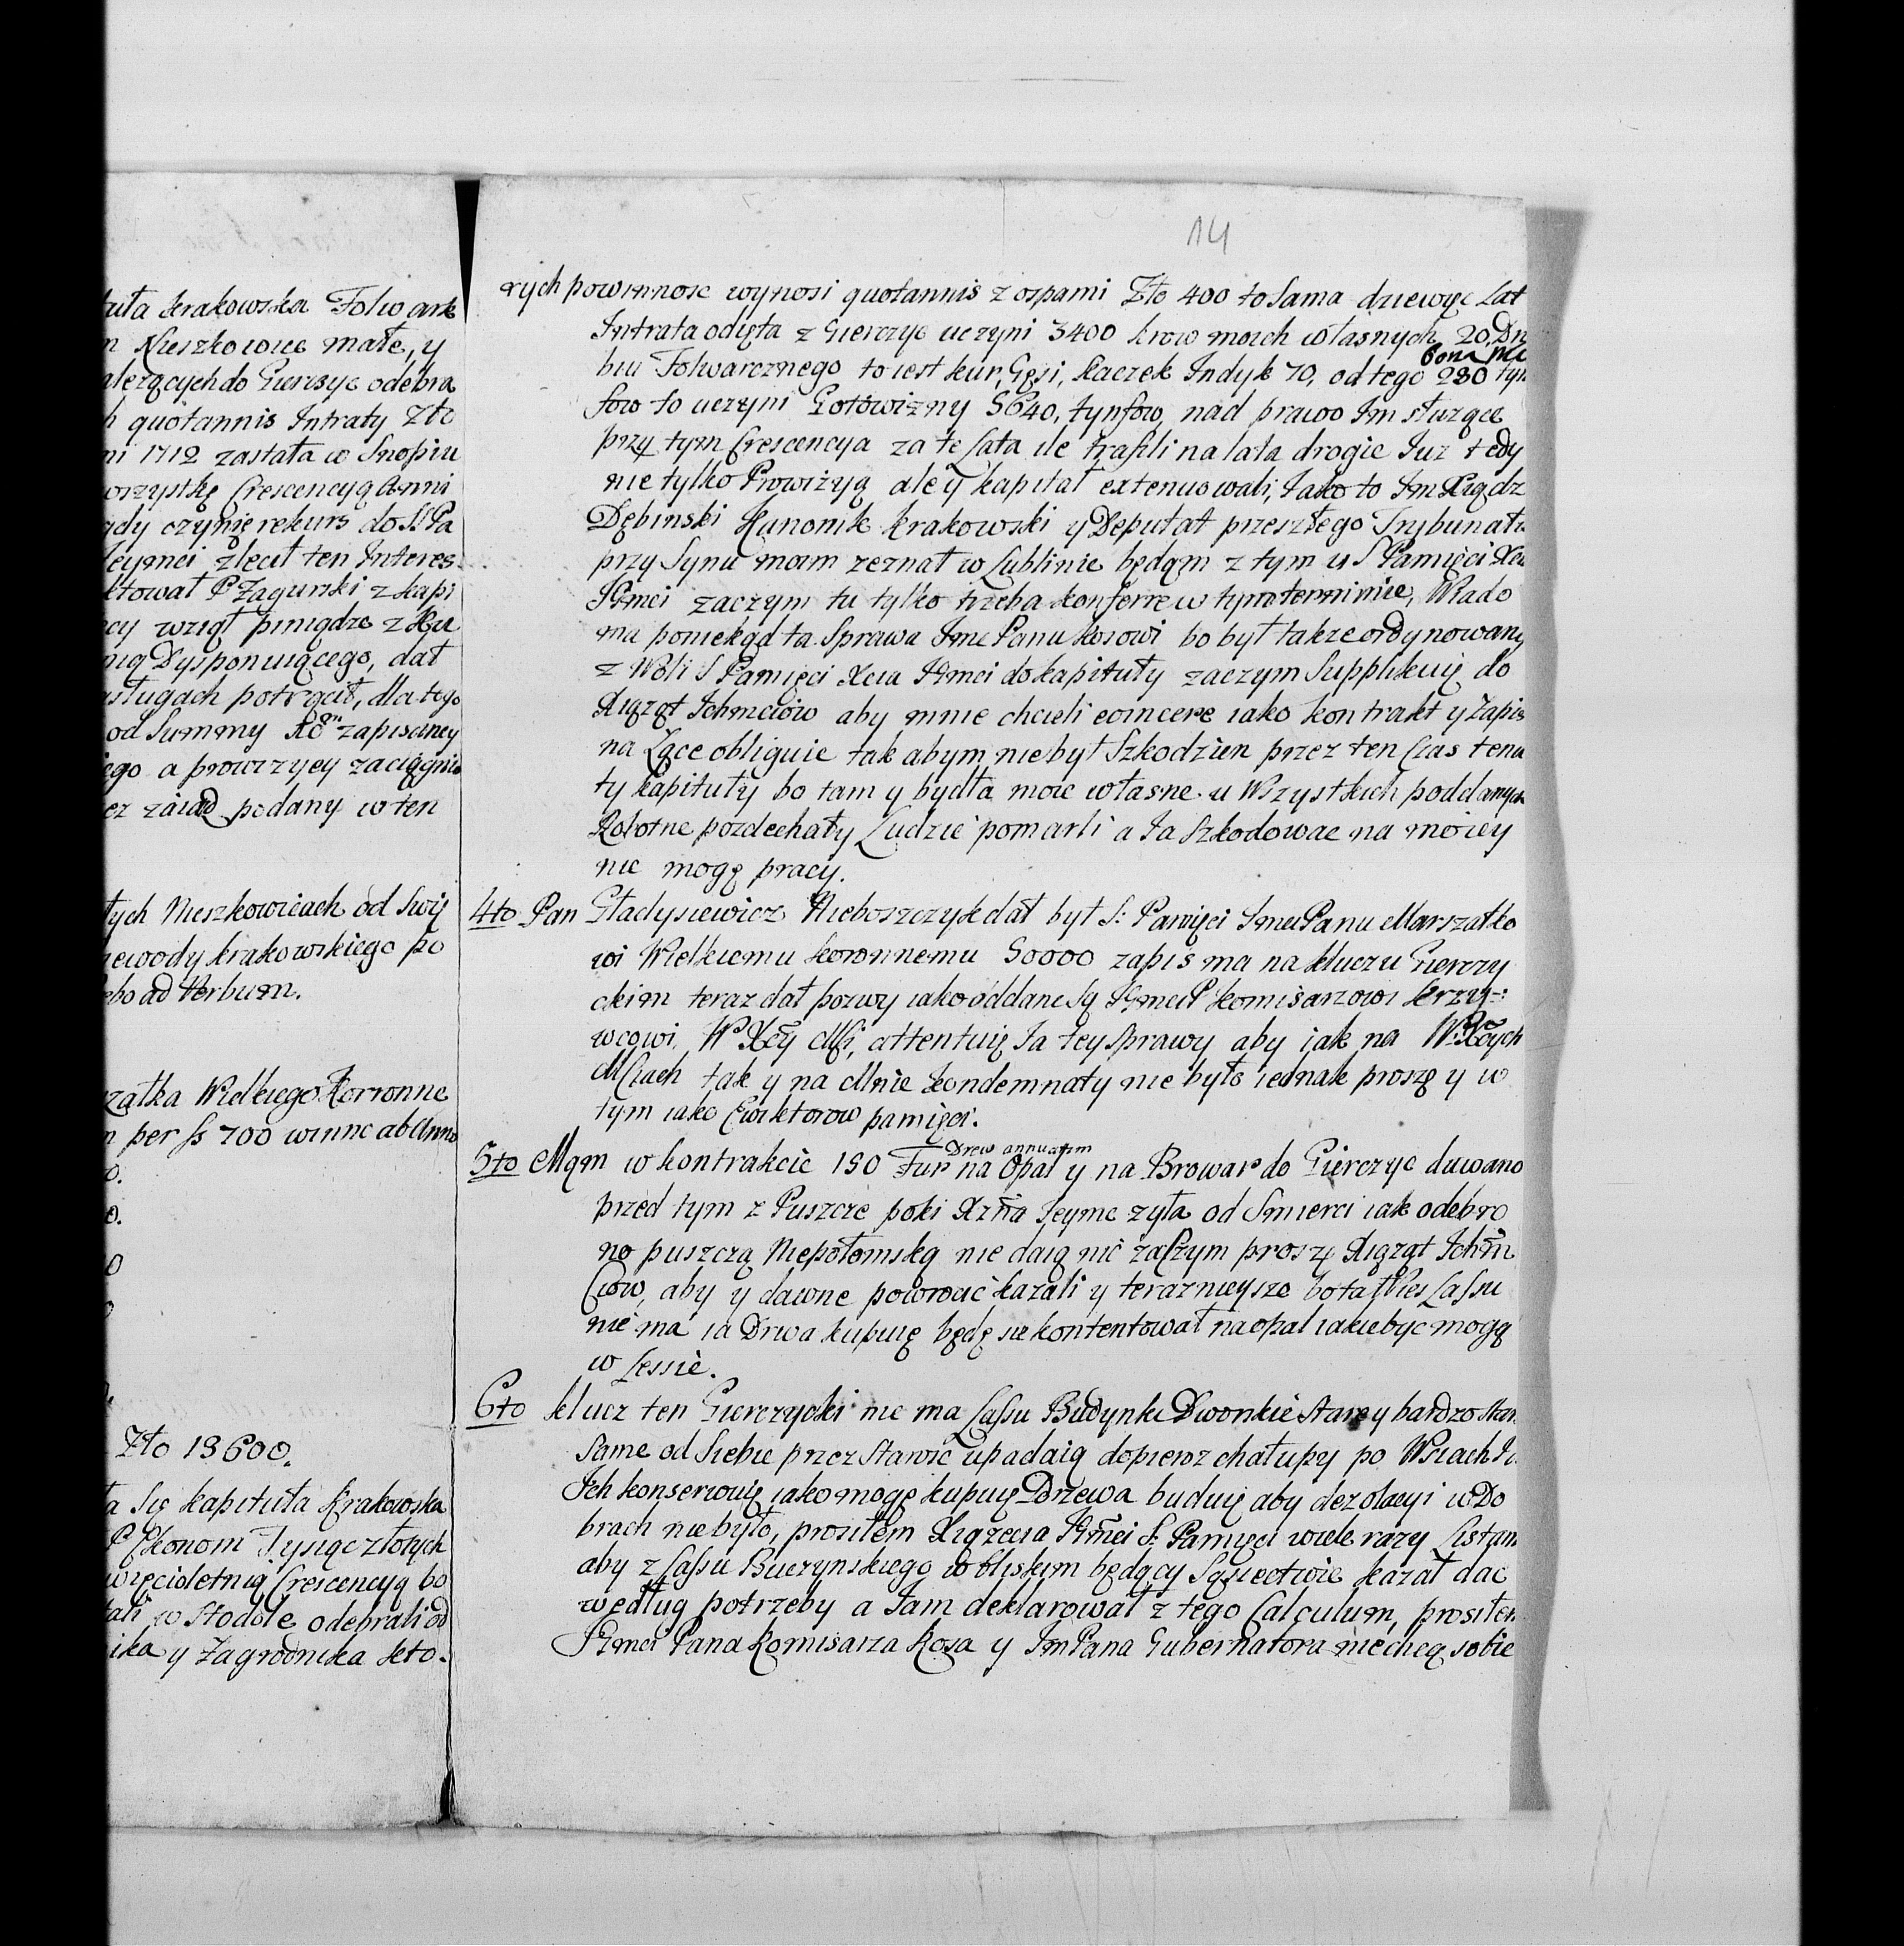 14
tuła krakowska Folwark
Nieszkowice małe, y
alezących do Gierczyc odebra
quotannis Intraty Zło
ni 1712 zastała w Snopiu
wszystkę Crescencyą Anni
gdy czynię rekurs do S: Pa
Jeymci zlecił ten Interes
ktował P Zagurski z kapi
cy wziął piniądze z
nią Dysponuiącego, dał
sługach potrącił, dla tego
od Summy zapisaney
ego a prowizyey zaciągnio
ez zaiad podany w ten
łych Nieszkowicach od Swię
iewody krakowskiego po
ebo ad Verbum.
załka Wielkiego Korronne
per 700 winne ab Anno
Zło 13600.
ła Się kapituła krakowska
P Ekonom Tysiąc złotych
więcioletnią Crescencyą bo
ali w Stodole odebrali od
ika y Zagrodnika kto-
rych powinnosc wynosi quotannis z ospami Zło 400 to Sama dziewięc Lat
Intrata odięta z Gierczyc uczyni 3400 krow moich własnych 20, Dro
biu Folwarcznego to iest kur, Gęsi, kaczek Indyk 70, od tego 280 tyn
fow to uczyni Gotowizny 5640, tynfow, nad prawo Im słuzące
przy tym Crescencya za te Lata ile trafili na lata drogie Iuz tedy
nie tylko Prowizyą ale y kapitał extenuowali, Iako to Im Xiądz
Dębinski Kanonik krakowski y Deputat przeszłego Trybunału
przy Synu moim zeznał w Lublinie będąm z tym u S Pamięci Xcia
Jmci zaczym tu tylko trzeba konferre w tym terminie, Wiado
ma poniekąd ta Sprawa Ime Panu kosowi bo był takze ordynowany
z Woli S Pamięci Xcia Jmci do kapituły zaczym Supplikuię do
Xiąząt Ichmciow aby mnie chcieli eoincere iako kontrakt y Zapis
na Lące obliguie tak abym nie był Szkodzien przez ten Czas tenu
ty kapituły bo tam y bydła moie własne u Wszystkich poddanych
Robotne pozdechały Ludzie pomarli a Ia Szkodowac na moiey
nie mogę pracy.
4to Pan Gładysiewicz Nieboszczyk dał był S: Pamięci Imci Panu Marszałko
wi Wielkiemu koronnemu 50000 zapis ma na kluczu Gierczy
ckim teraz dał pozwy iako oddane Są Jmci P komisarzowi krzy-
wcowi, W Xcy Mci, attentuię Ia tey Sprawy aby iak na W Xcych
MCiach tak y na Mnie kondemnaty nie było iednak proszę y w
tym iako Ewiktorow pamięci.
Drew annuatim
5to Mąm w kontrakcie 150 Fur na Opał y na Browar do Gierczyc duwano
przed tym z Puszcze poki Xzna Jeymc zyła od Smierci iak odebro
no puszczą Niepołomską nie daią nic zaczym proszę Xiąząt Ichm
Ciow, aby y dawne powrocic kazali y teraznieysze bo ta Wies Lassu
nie ma ia Drwa kupuię będę się kontentował na opał iakie byc mogą
w Lessie.
6to klucz ten Gierczycki nie ma Lassu Budynki Dworskie Stare y bardzo
Same od Siebie przez Starosc upadaią dopieroz chałupy po Wsiach
Ich konserwuię iako mogę kupuię Drzewa buduię aby dezolacyi w Do
brach nie było, prosiłem Xiązecia Jmci S: Pamięci wiele razy Listam
aby z Lassu Buczynskiego w bliskim będący Sąsiectwie kazał dac
według potrzeby a Iam deklarował z tego Calculum, prosiłem
Jmci Pana komisarza kosa y Im Pana Gubernatora nie chcą sobie